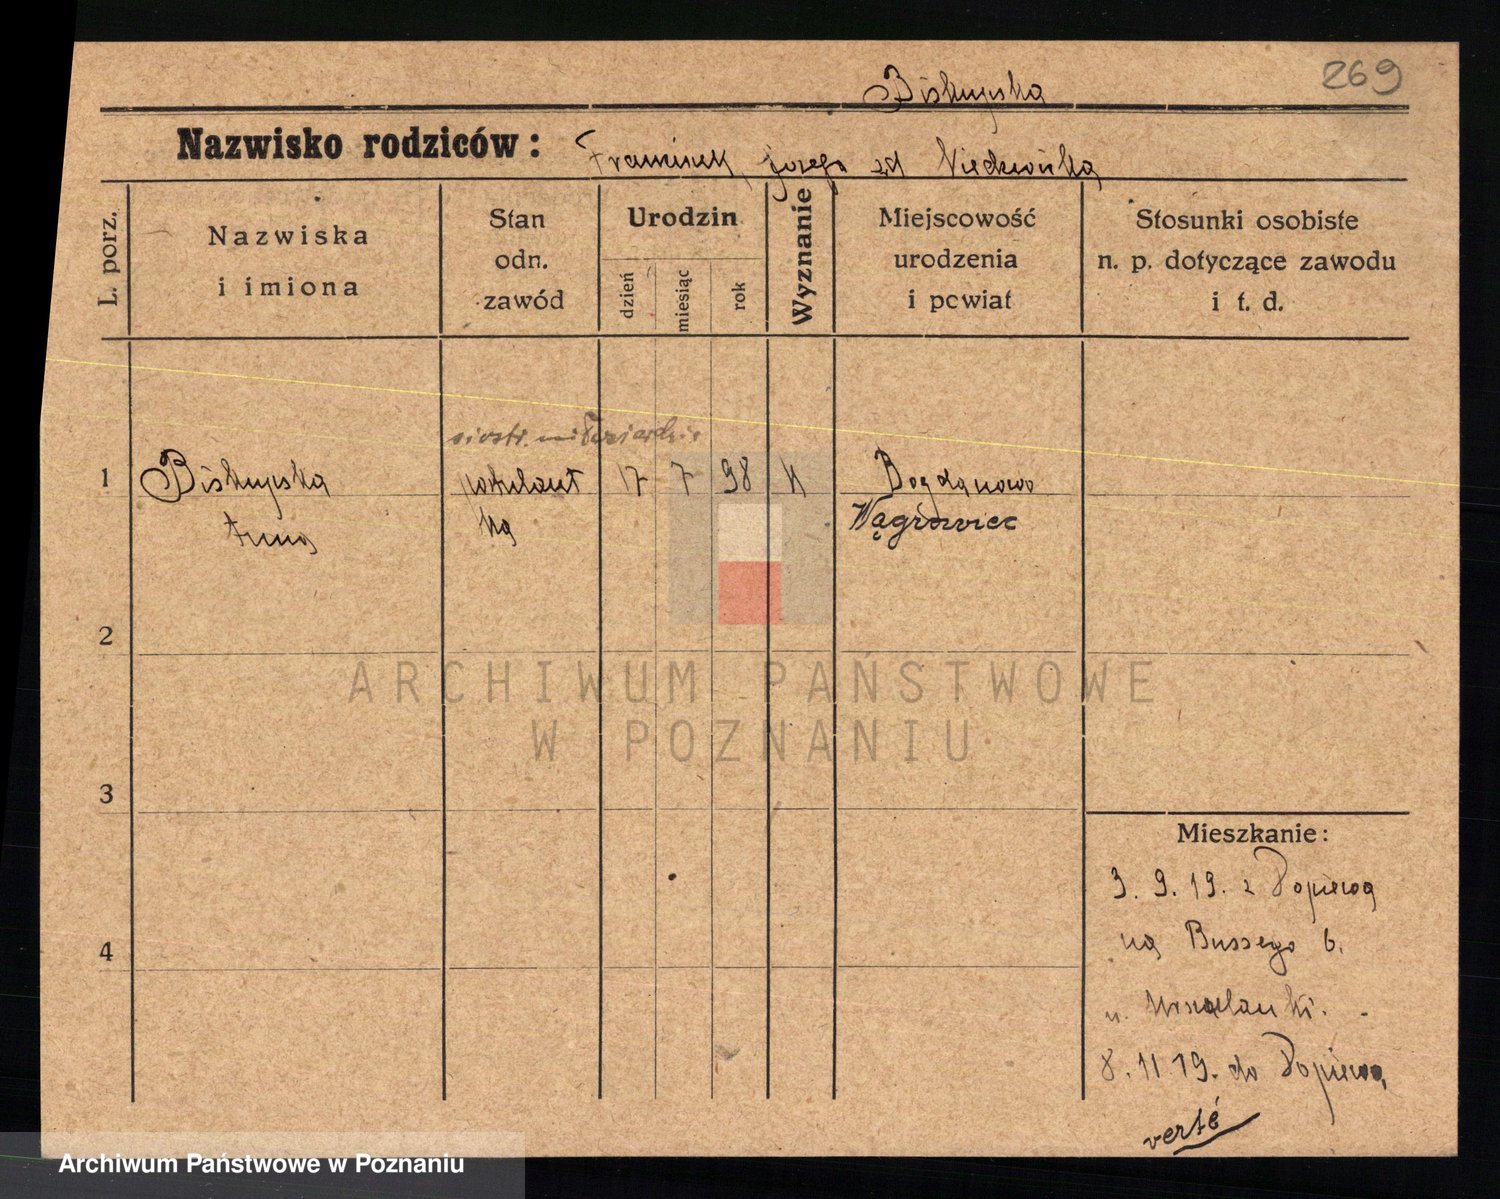 269
Biskupska
Nazwisko rodziców: Franciszek, Józefa zd
L. porz.
Nazwiska
i imiona
Stan
odn.
zawód
Urodzin
dzień
miesiąc
rok
Wyznanie
Miejscowość
urodzenia
i powiat
Stosunki osobiste
n. p. dotyczące zawodu
i t. d.
siostr. miłosierdzia
1 Biskupska postulant 17 7 98 K Bogdanowo
Anna ka Wągrowiec
2
ARCHIWUM PAŃSTWOWE
W POZNANIU
3
Mieszkanie:
3. 9. 19. z Dopiewa
na Bussego 6.
u. Urszulanki.
4
8. 11 19. do Dopiewa,
verté
Archiwum Państwowe w Poznaniu